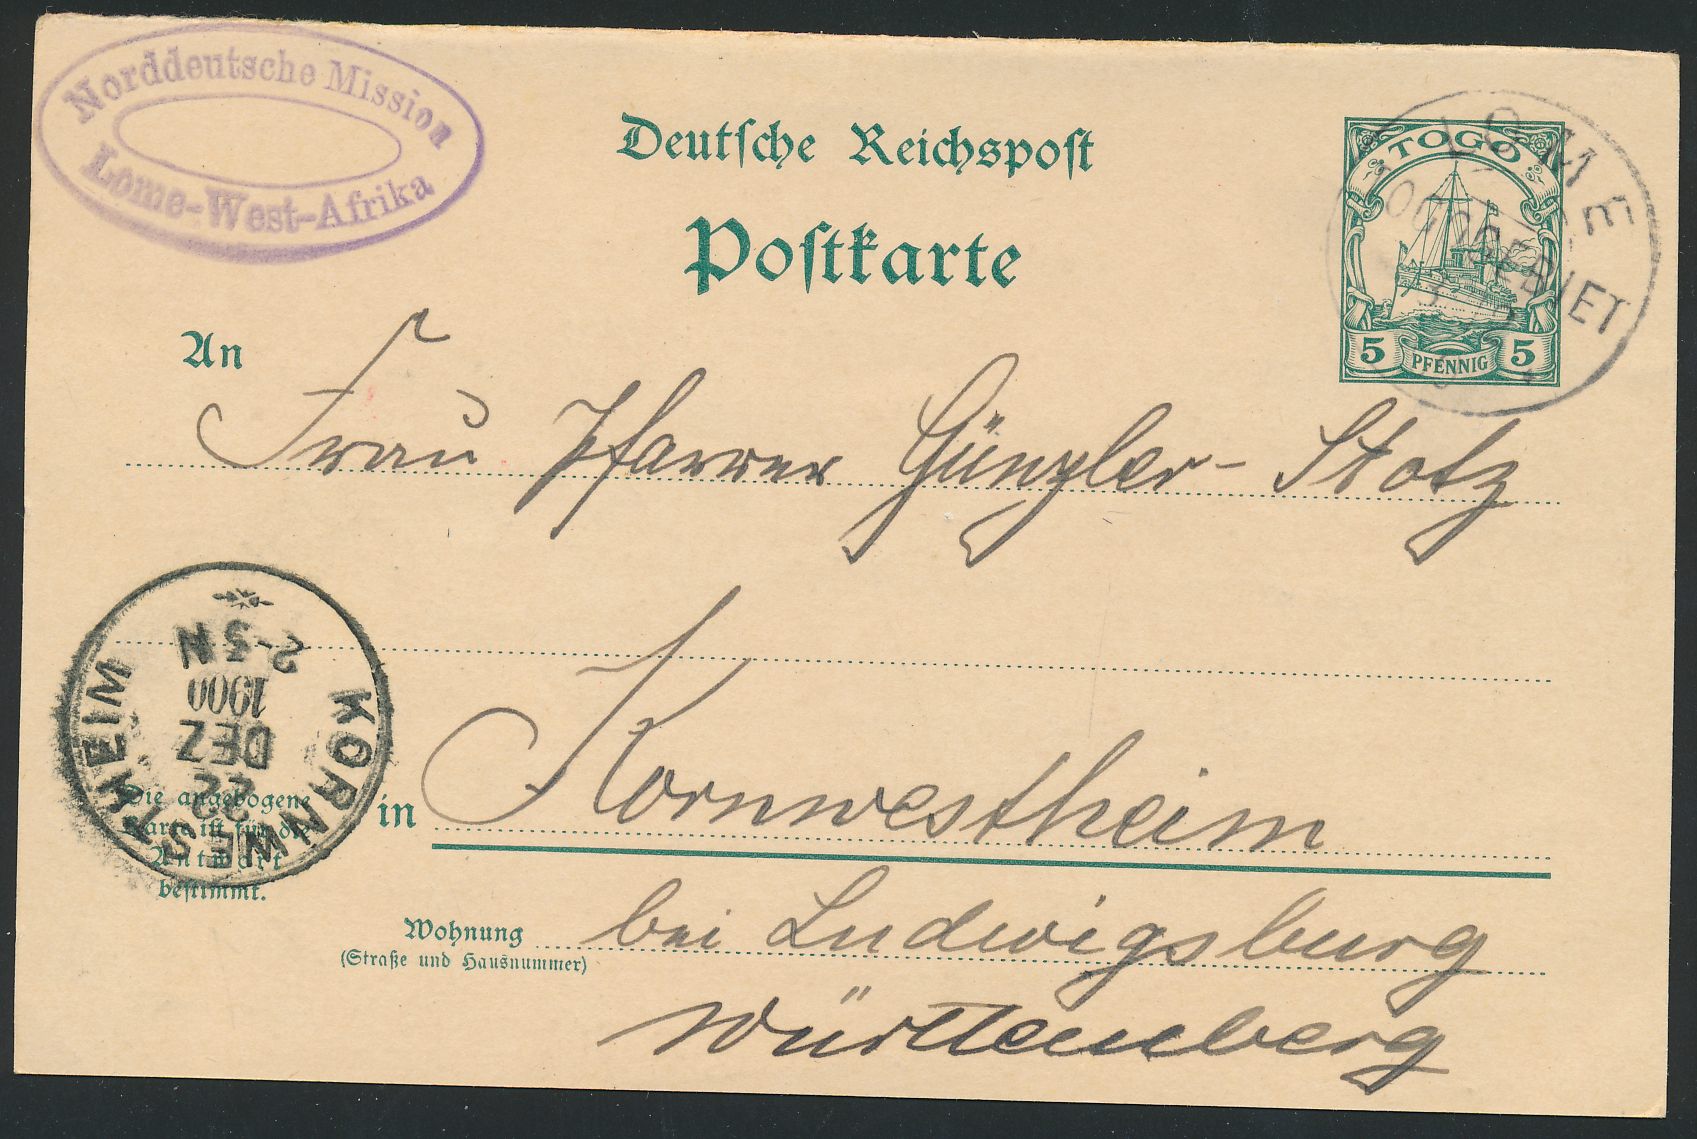 Norddeutsche Mission
Lome-West-Afrika
Deutsche Reichspost
Postkarte
TOGO
5 PFENNIG 5
LOME
TOGOGEBIET
An
Frau Pfarrer Günzler-Stotz
KORNWESTHEIM
22
DEZ
1900
2-3N
Die angebogene
Karte ist für die
Antwort
bestimmt.
in Kornwestheim
Wohnung bei Ludwigsburg
(Straße und Hausnummer)
Württemberg